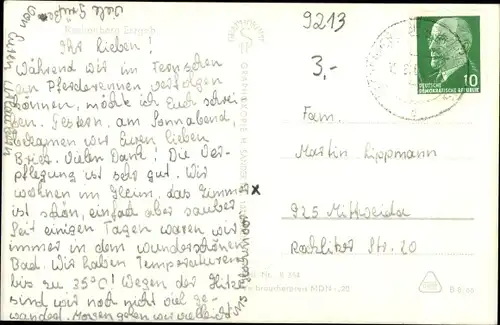 Viele Grüße
von Euren
Raschenberg Erzgeb.
Ihr lieben!
Während wir im Fernsehen
ein Pferderennen verfolgen
können, möchte ich Euch schrei-
ben. Gestern, am Sonnabend,
bekamen wir Euren lieben
Brief. Vielen Dank! Die Ver-
pflegung ist sehr gut. Wir
wohnen im Gleim, das Zimmer x
ist schön, einfach aber sauber
Seit einigen Tagen waren wir
immer in dem wunderschönen
Bad. Wir haben Temperaturen
bis zu 35°C! Wegen der Hitze
sind wir noch nicht viel ge-
wandert. Morgen gehen wir vielleicht
9213
3,-
10
DEUTSCHE
DEMOKRATISCHE REPUBLIK
Fam.
Martin Lippmann
925 Mittweida
Rochlitzer Str. 20
Verbraucherpreis MDN -,20